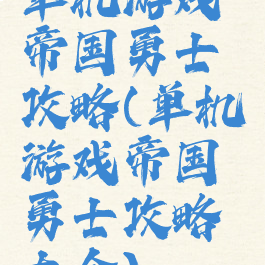 单机游戏
帝国勇士
攻略(单机
游戏帝国
勇士攻略
大全)